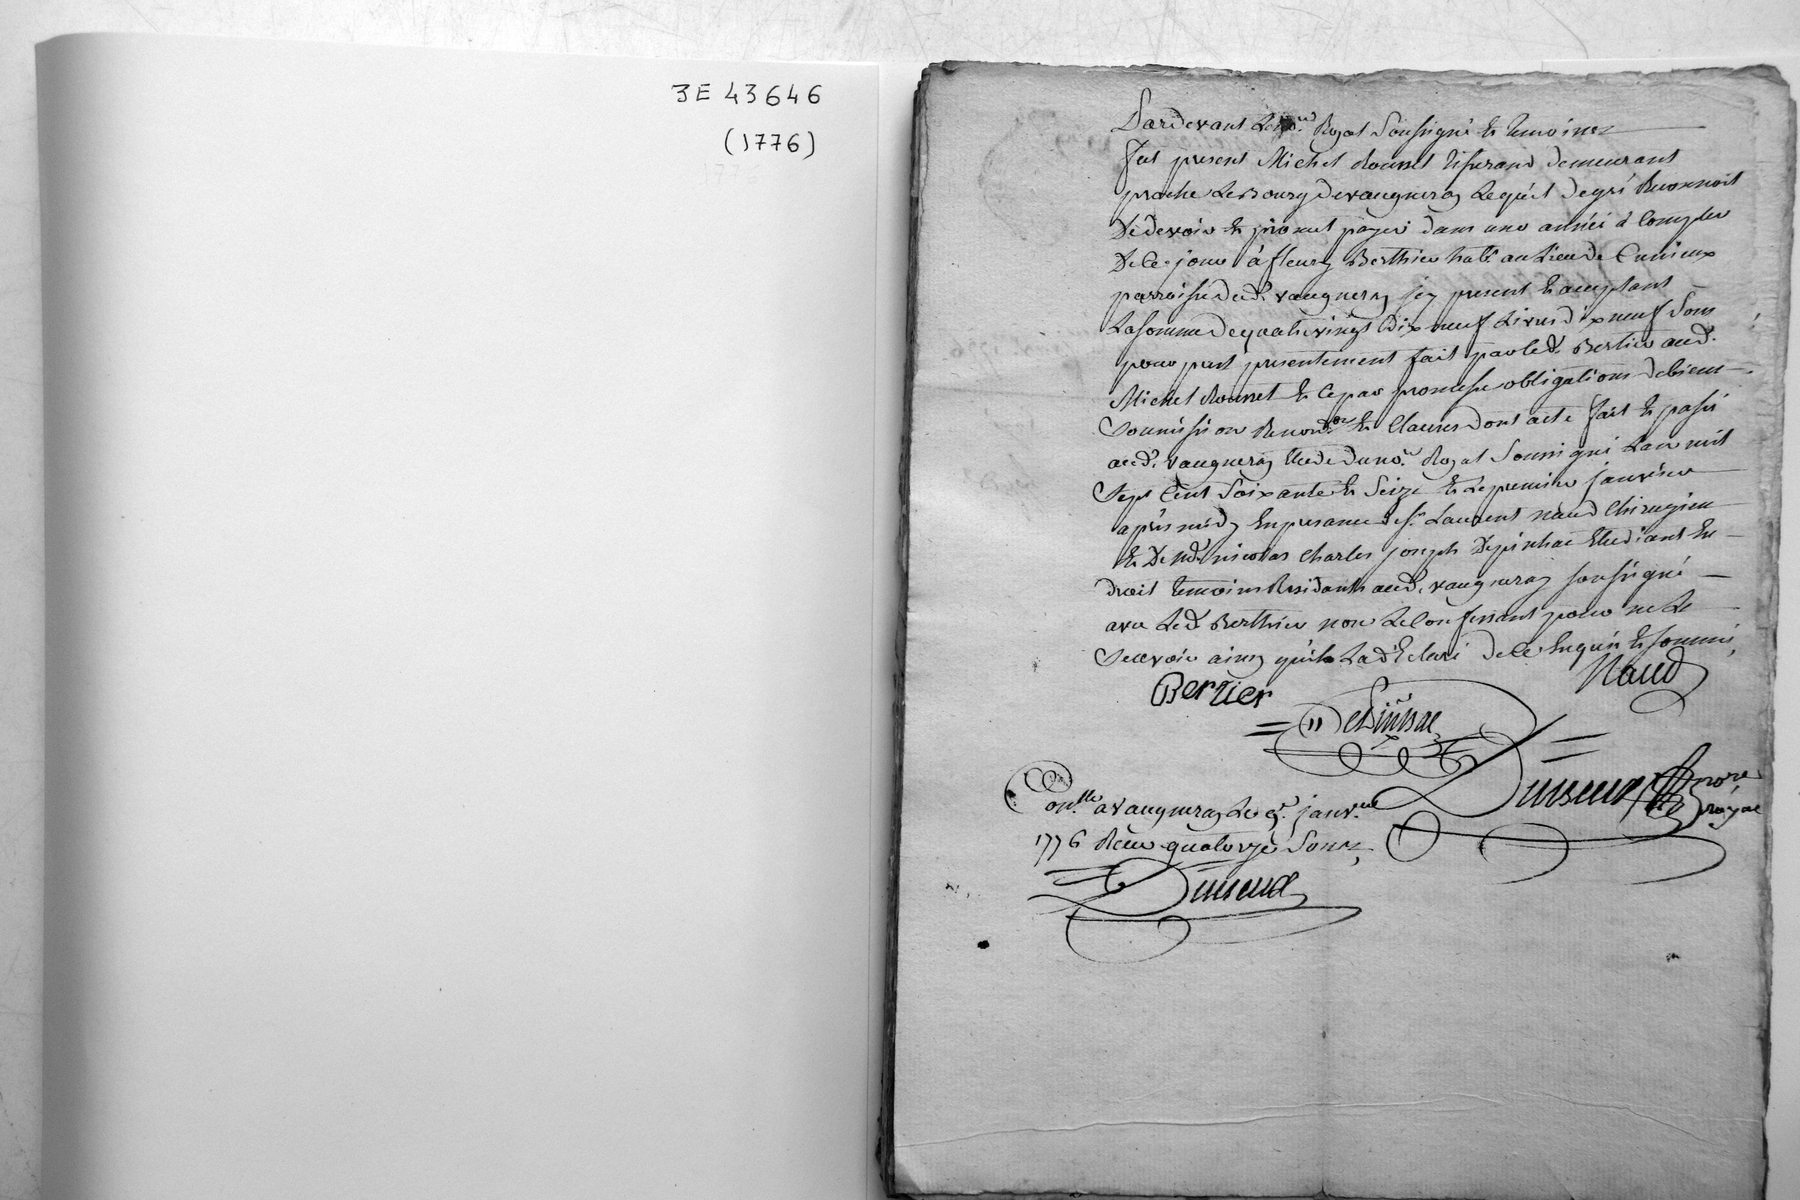 3E 43646
(1776)
Pardevant Le no.re Royal Soussigné Et temoins
fut present Michel Rounet tisserand demeurant
proche Le Bourg de vaugneray Lequel de gré Reconnoit
De devoir Et promet payer dans une année à Compter
De Ce jour à fleury Berthier hab.t au Lieu de
parroisse dud. vaugneray jcy present Et acceptant
La somme de quatrevingt dix neuf Livres dix neuf Sous
pour pret presentement fait par Led. Bertier aud.
Michel Rounet Et Ce par promesse obligations de biens
Soumission Renon.on Et Clauses dont acte fait Et passé
aud. vaugneray Etude du no.re Royal Soussigné L'an mil
Sept Cent Soixante Et Seize Et Le premier janvier
après midy En presence de s.r Laurent naud Chirurgien
Et De nicolas Charles joseph Etudiant En
droit temoins Residants aud. vaugneray soussigné
avec Led. Berthier non Le Confessant pour ne Le
Scavoir ainsy qu'il La déclaré de Ce Enquis Et sommé,
Bertier
Naud
no.re
royal
Con.llé a vaugneray Le 9.e janv.er
1776 Reçu quatorze Sous,